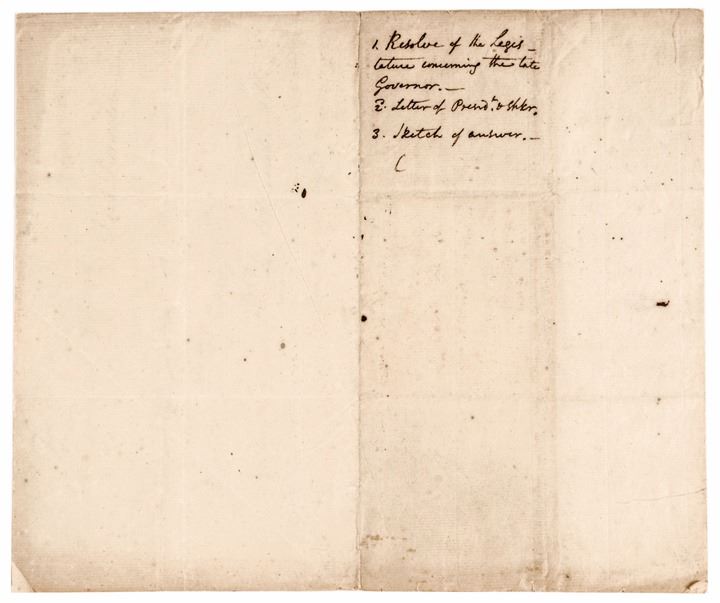 1. Resolve of the Legis-
lature concerning the late
Governor. —
2. Letter of Presidt. & Spkr.
3. Sketch of answer. —